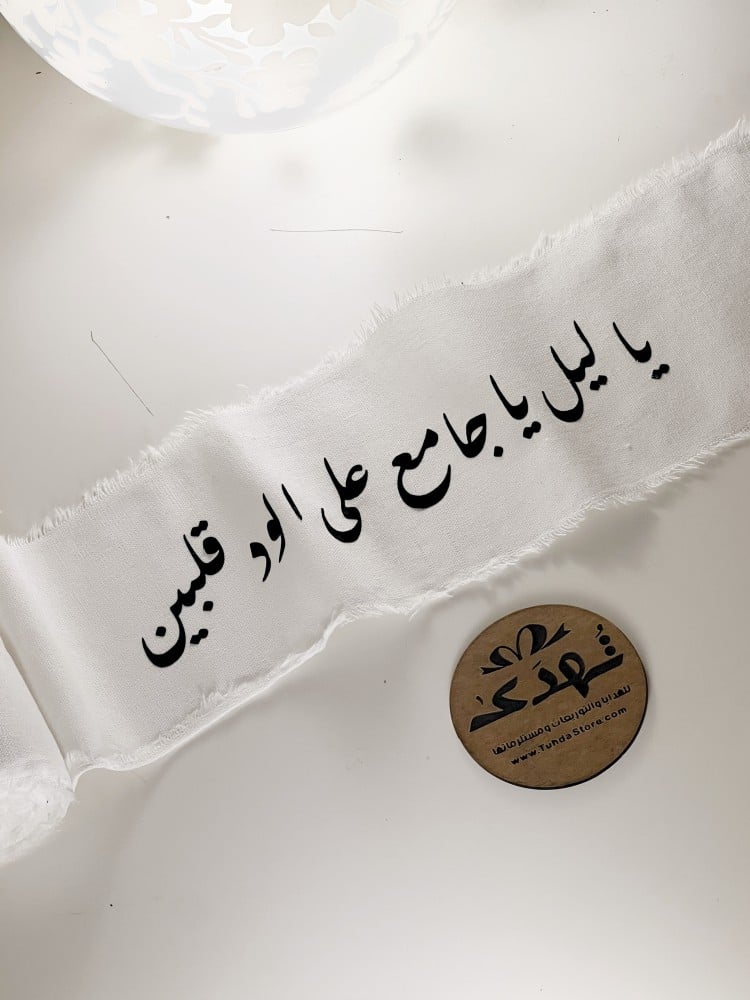 يا ليل يا جامع على الود قلبين
تُهدى
للهدايا والتوزيعات ومستلزماتها
www.TuhdaStore.com